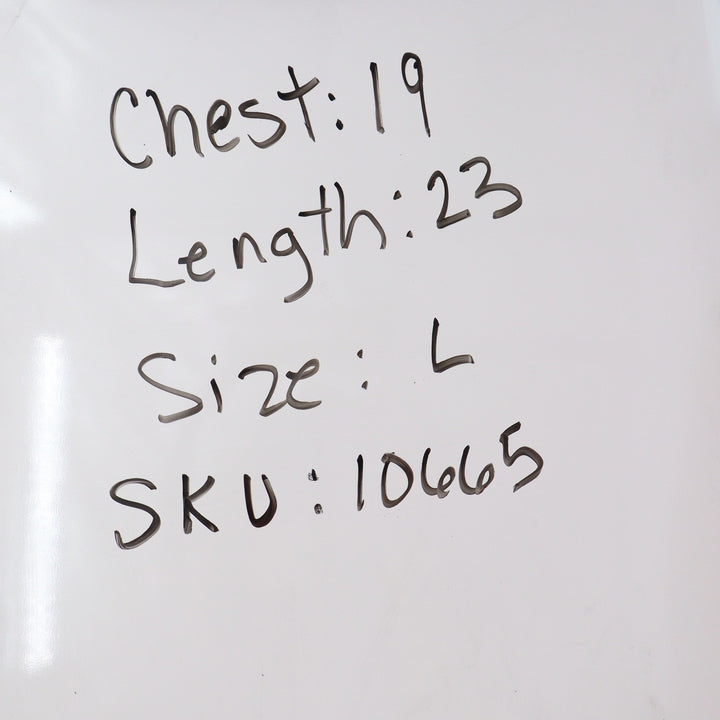 Chest: 19
Length: 23
Size: L
SKU: 10665